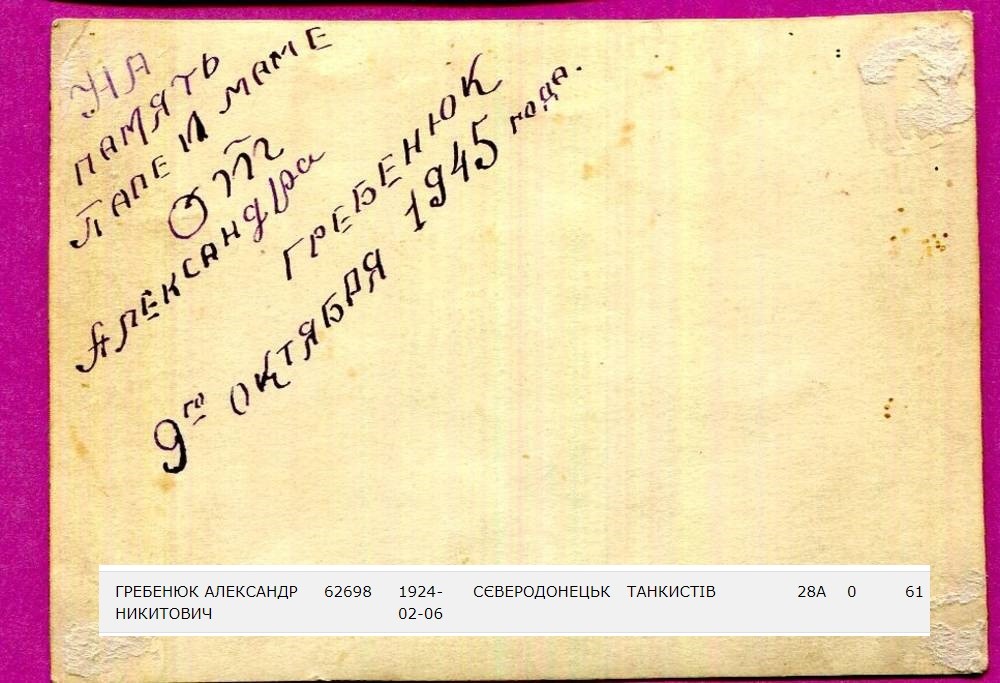 НА
ПАМЯТЬ
ПАПЕ И МАМЕ
От
АЛЕКСАНДРа
ГРЕБЕНЮК
9го ОКТЯБРЯ 1945 года.
ГРЕБЕНЮК АЛЕКСАНДР 62698 1924- СЄВЕРОДОНЕЦЬК ТАНКИСТІВ 28А 0 61
НИКИТОВИЧ 02-06